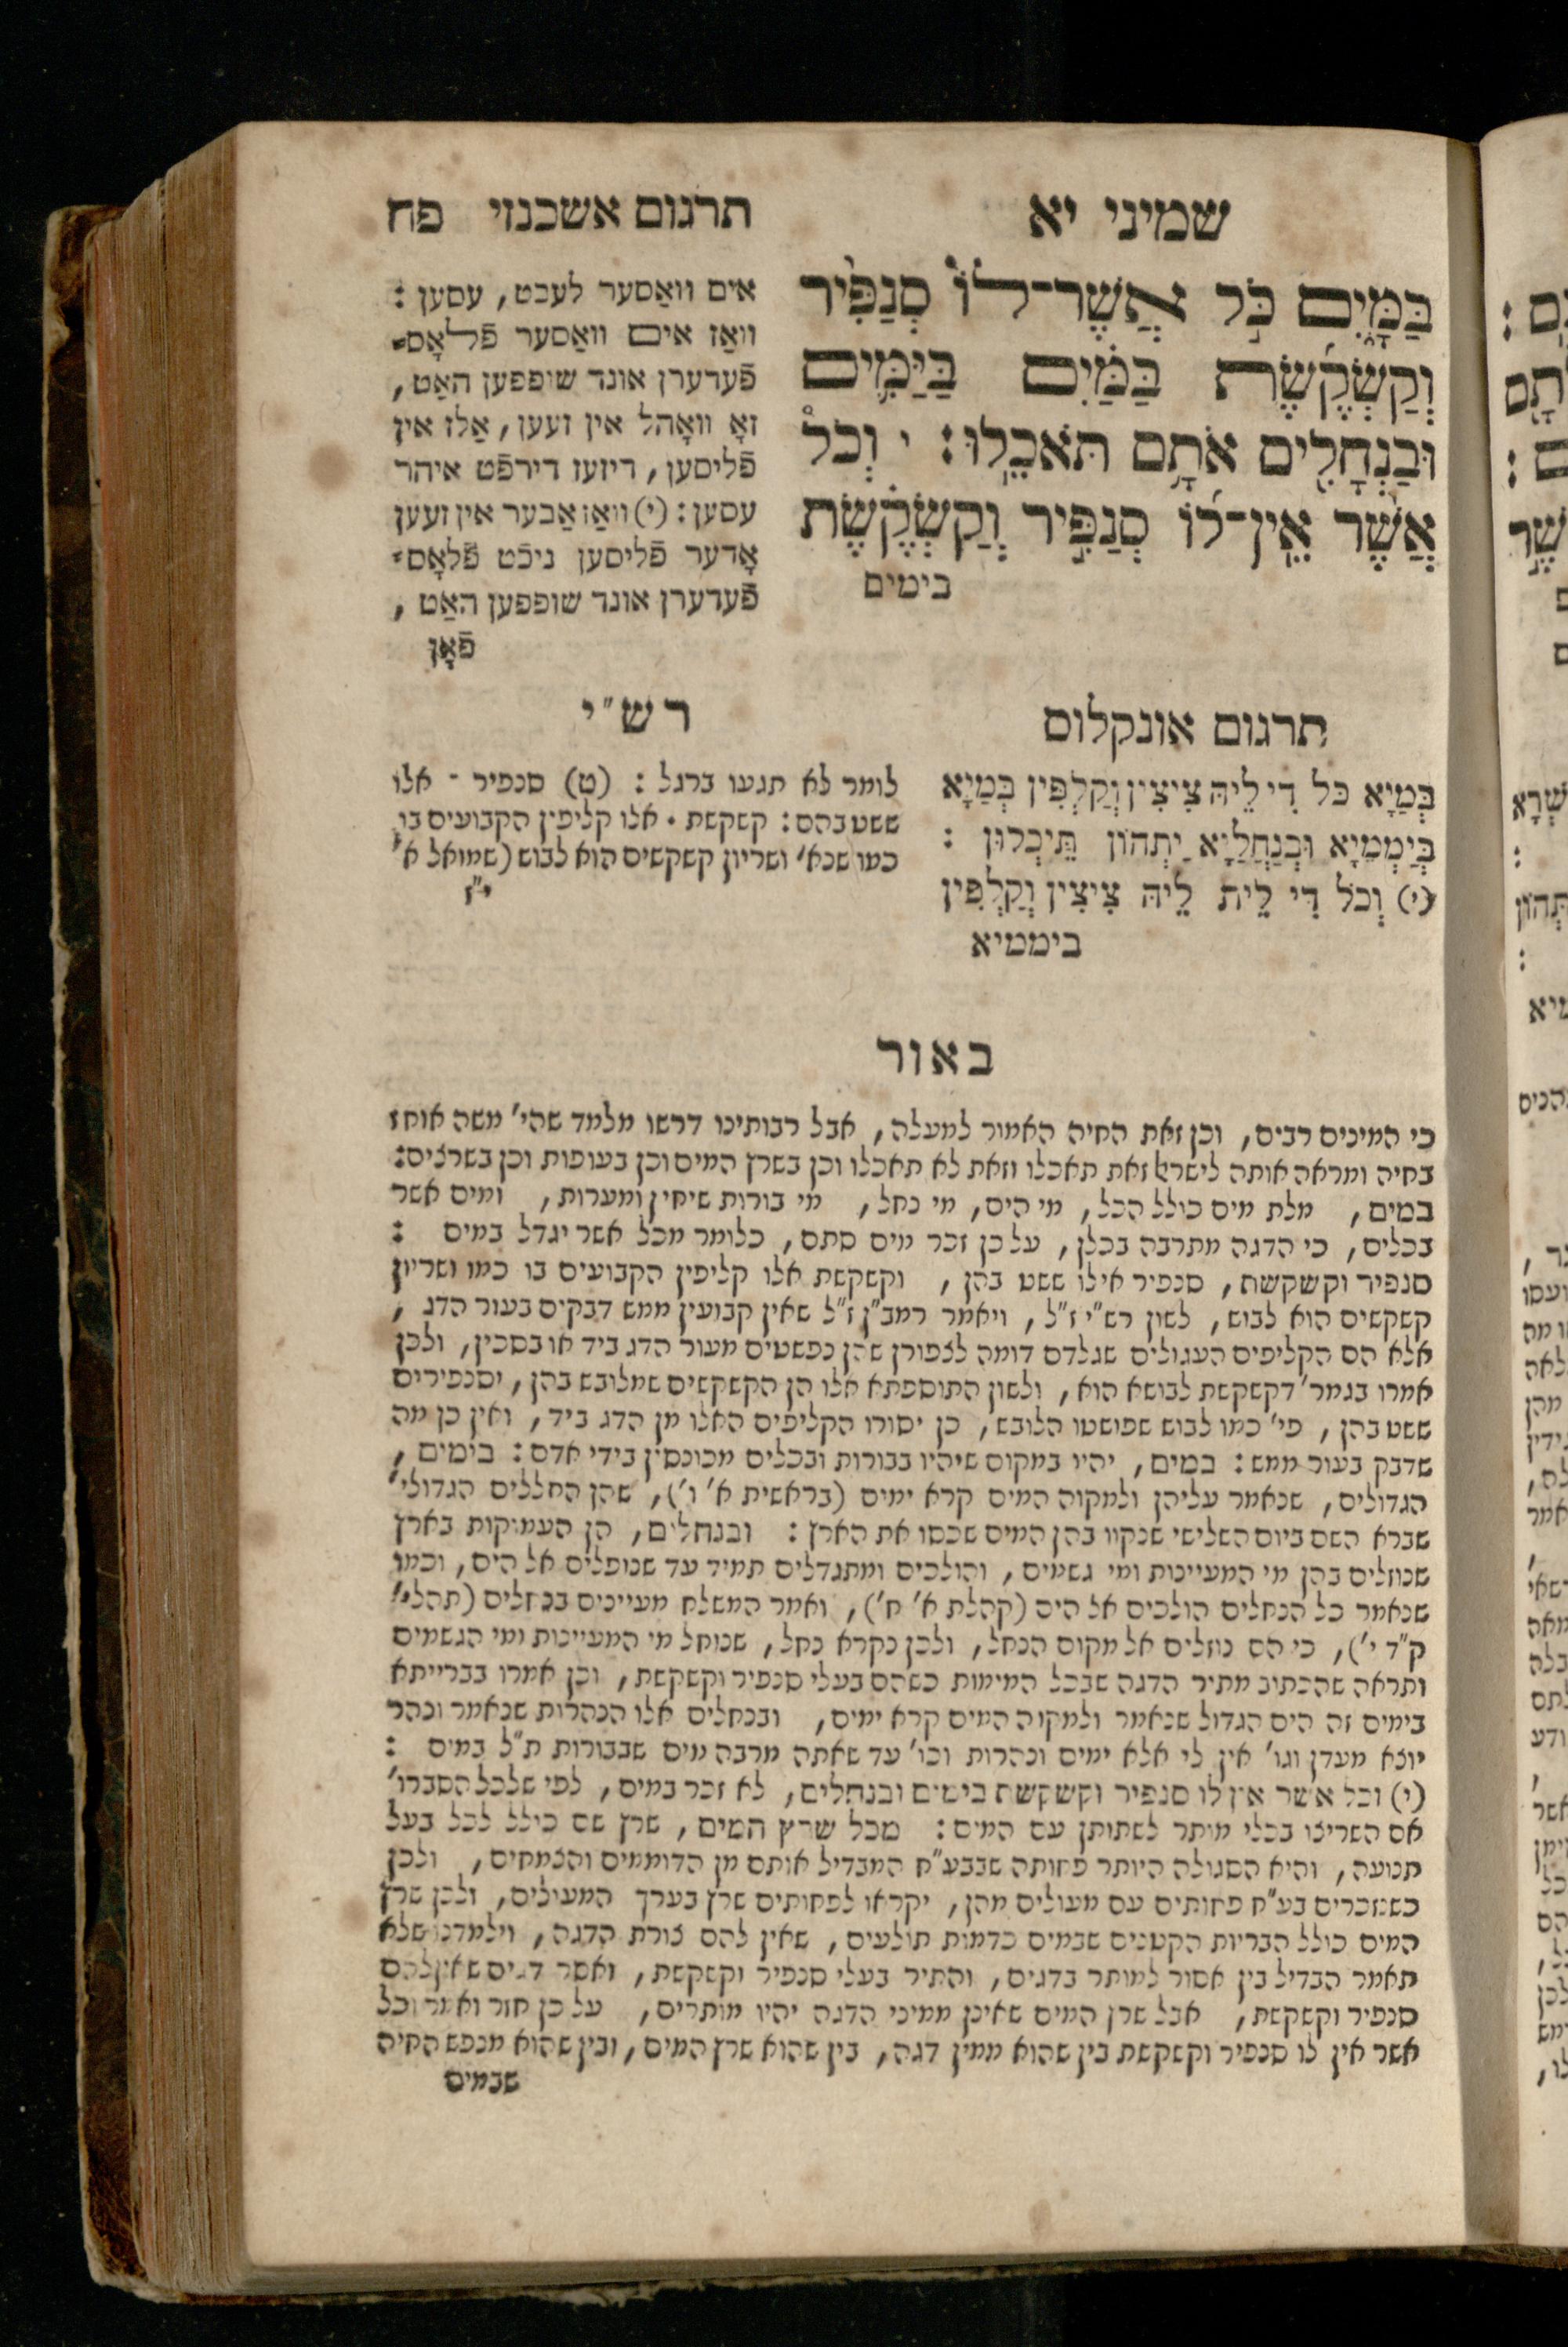 שמיני יא
תרגום אשכנזי פח
בַּמָּיִם כֹּל אֲשֶׁר־לוֹ סְנַפִּיר
וְקַשְׂקֶשֶׂת בַּמַּיִם בַּיַּמִּים
וּבַנְּחָלִים אֹתָם תֹּאכֵלוּ : י וְכֹל
אֲשֶׁר אֵין־לוֹ סְנַפִּיר וְקַשְׂקֶשֶׂת
בימים
אים וואַסער לעבט, עסען :
וואַז אים וואַסער פֿלאָס־
פֿעדערן אונד שופפען האַט,
זאָ וואָהל אין זעען, אַלז אין
פֿליסען, דיזעז דירפֿט איהר
עסען : (י) וואַז אַבער אין זעען
אָדער פֿליסען ניכֿט פֿלאָס־
פֿעדערן אונד שופפען האַט,
פֿאָן
תרגום אונקלוס
בְּמַיָא כֹּל דִי לֵיהּ צִיצִין וְקַלְפִּין בְּמַיָא
בְּיַמְמַיָא וּבְנַחֲלַיָא יַתְהוֹן תֵּיכְלוּן :
(י) וְכֹל דִי לֵית לֵיהּ צִיצִין וְקַלְפִּין
ביממיא
רש״י
לומר לא תגעו ברגל : (ט) סנפיר ־ אלו
ששט בהם : קשקשת . אלו קליפין הקבועים בו
כמו שנא׳ ושריון קשקשים הוא לבוש (שמואל א׳
י״ז
באור
כי המינים רבים, וכן זאת החיה האמור למעלה, אבל רבותינו דרשו מלמד שהי׳ משה אוחז
בחיה ומראה אותה לישראל זאת תאכלו וזאת לא תאכלו וכן בשרץ המים וכן בעופות וכן בשרצים :
במים, מלת מים כולל הכל, מי הים, מי נחל, מי בורות שיחין ומערות, ומים אשר
בכלים, כי הדגה מתרבה בכלן, על כן זכר מים סתם, כלומר מכל אשר יגדל במים :
סנפיר וקשקשת, סנפיר אילו ששט בהן, וקשקשת אלו קליפין הקבועים בו כמו ושריון
קשקשים הוא לבוש, לשון רש״י ז״ל, ויאמר רמב״ן ז״ל שאין קבועין ממש דבקים בעור הדג,
אלא הם הקליפים העגולים שגלדם דומה לצפורן שהן נפשטים מעור הדג ביד או בסכין, ולכן
אמרו בגמר׳ דקשקשת לבושא הוא, ולשון התוספתא אלו הן הקשקשים שמלובש בהן, וסנפירים
ששט בהן, פי׳ כמו לבוש שפושטו הלובש, כן יסורו הקליפים האלו מן הדג ביד, ואין כן מה
שדבק בעור ממש : במים, יהיו במקום שיהיו בבורות ובכלים מכונסין בידי אדם : בימים,
הגדולים, שנאמר עליהן ולמקוה המים קרא ימים (בראשית א׳ ו׳), שהן החללים הגדולי׳
שברא השם ביום השלישי שנקוו בהן המים שכסו את הארץ : ובנחלים, הן העמוקות בארץ
שנוזלים בהן מי המעיינות ומי גשמים, והולכים ומתגדלים תמיד עד שנופלים אל הים, וכמו
שנאמר כל הנחלים הולכים אל הים (קהלת א׳ ח׳), ואמר המשלח מעיינים בנחלים (תהלי׳
ק״ד י׳), כי הם נוזלים אל מקום הנחל, ולכן נקרא נחל, שנוחל מי המעיינות ומי הגשמים
ותראה שהכתיב מתיר הדגה שבכל המימות כשהם בעלי סנפיר וקשקשת, וכן אמרו בברייתא
בימים זה הים הגדול שנאמר ולמקוה המים קרא ימים, ובנחלים אלו הנהרות שנאמר ונהר
יוצא מעדן וגו׳ אין לי אלא ימים ונהרות וכו׳ עד שאתה מרבה מים שבבורות ת״ל במים :
(י) וכל אשר אין לו סנפיר וקשקשת בימים ובנחלים, לא זכר במים, לפי שלכל הסברו׳
אם השריצו בכלי מותר לשתותן עם המים : מכל שרץ המים, שרץ שם כולל לכל בעל
תנועה, והיא הסגולה היותר פחותה שבבע״ח המבדיל אותם מן הדוממים והצמחים, ולכן
כשנזכרים בע״ח פחותים עם מעולים מהן, יקראו לפחותים שרץ בערך המעולים, ולכן שרץ
המים כולל הבריות הקטנים שבמים כדמות תולעים, שאין להם צורת הדגה, וילמדנו שלא
תאמר הבדיל בין אסור למותר בדגים, והתיר בעלי סנפיר וקשקשת, ואסר דגים שאין להם
סנפיר וקשקשת, אבל שרץ המים שאינן ממיני הדגה יהיו מותרים, על כן חזר ואמר וכל
אשר אין לו סנפיר וקשקשת בין שהוא ממין דגה, בין שהוא שרץ המים, ובין שהוא מנפש החיה
שבמים